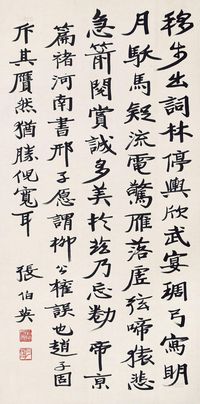 移步出詞林停輿欣武宴琱弓寫明
月駃馬疑流電驚雁落虛弦啼猿悲
急箭閱賞誠多美於茲乃忘勌帝京
篇褚河南書邢子愿謂柳公權誤也趙子固
斥其贋然猶勝倪寬耳
張伯英